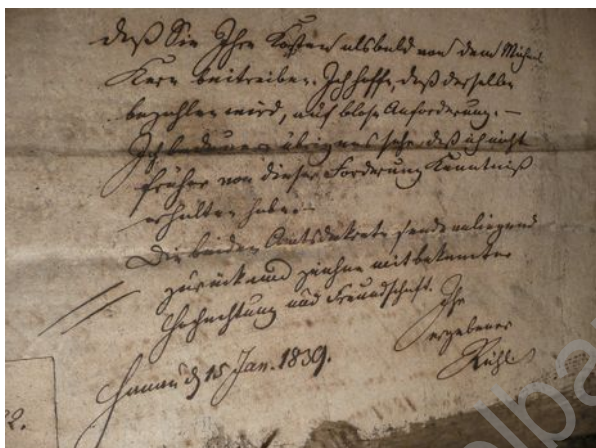 daß Sie Ihre Kosten alsbald von dem Michael
Kern beitreiben. Ich hoffe, daß derselbe
bezahlen wird, auf blose Anforderung. —
Ich bedauere übrigens sehr, daß ich nicht
früher von dieser Forderung Kenntniß
erhalten habe. —
Die beiden Amtsdekrete sende anliegend
zurück und zeichne mit bekannter
Hochachtung und Freundschaft. Ihr
ergebener
Rühl
Hanau d 15 Jan. 1839.
2.